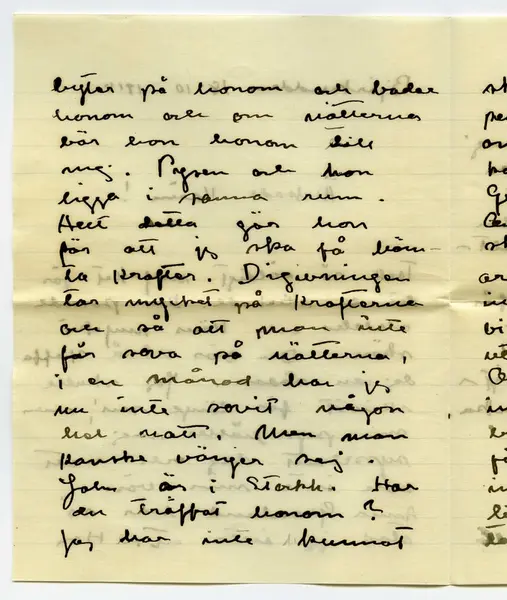 byter på honom och badar
honom och om nätterna
bär hon honom till
mig. Pysen och hon
ligga i samma rum.
Allt detta gör hon
för att jag ska få häm-
ta krafter. Digivningen
tar mycket på krafterna
och så att man inte
får sova på nätterna,
i en månad har jag
nu inte sovit någon
hel natt. Men man
kanske vänjer sej.
John är i Stockh. Har
du träffat honom?
Jag har inte kunnat